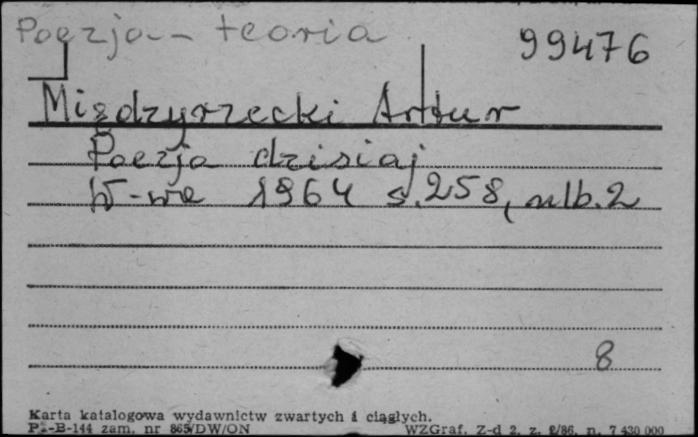 Poezja - teoria
99476
Międzyrzecki Artur
Poezja dzisiaj
W-wa 1964 s. 258, nlb. 2
8
Karta katalogowa wydawnictw zwartych i ciągłych.
Pu-B-144 zam. nr 865/DW/ON
WZGraf. Z-d 2. z. 2/86. n. 7 430 000